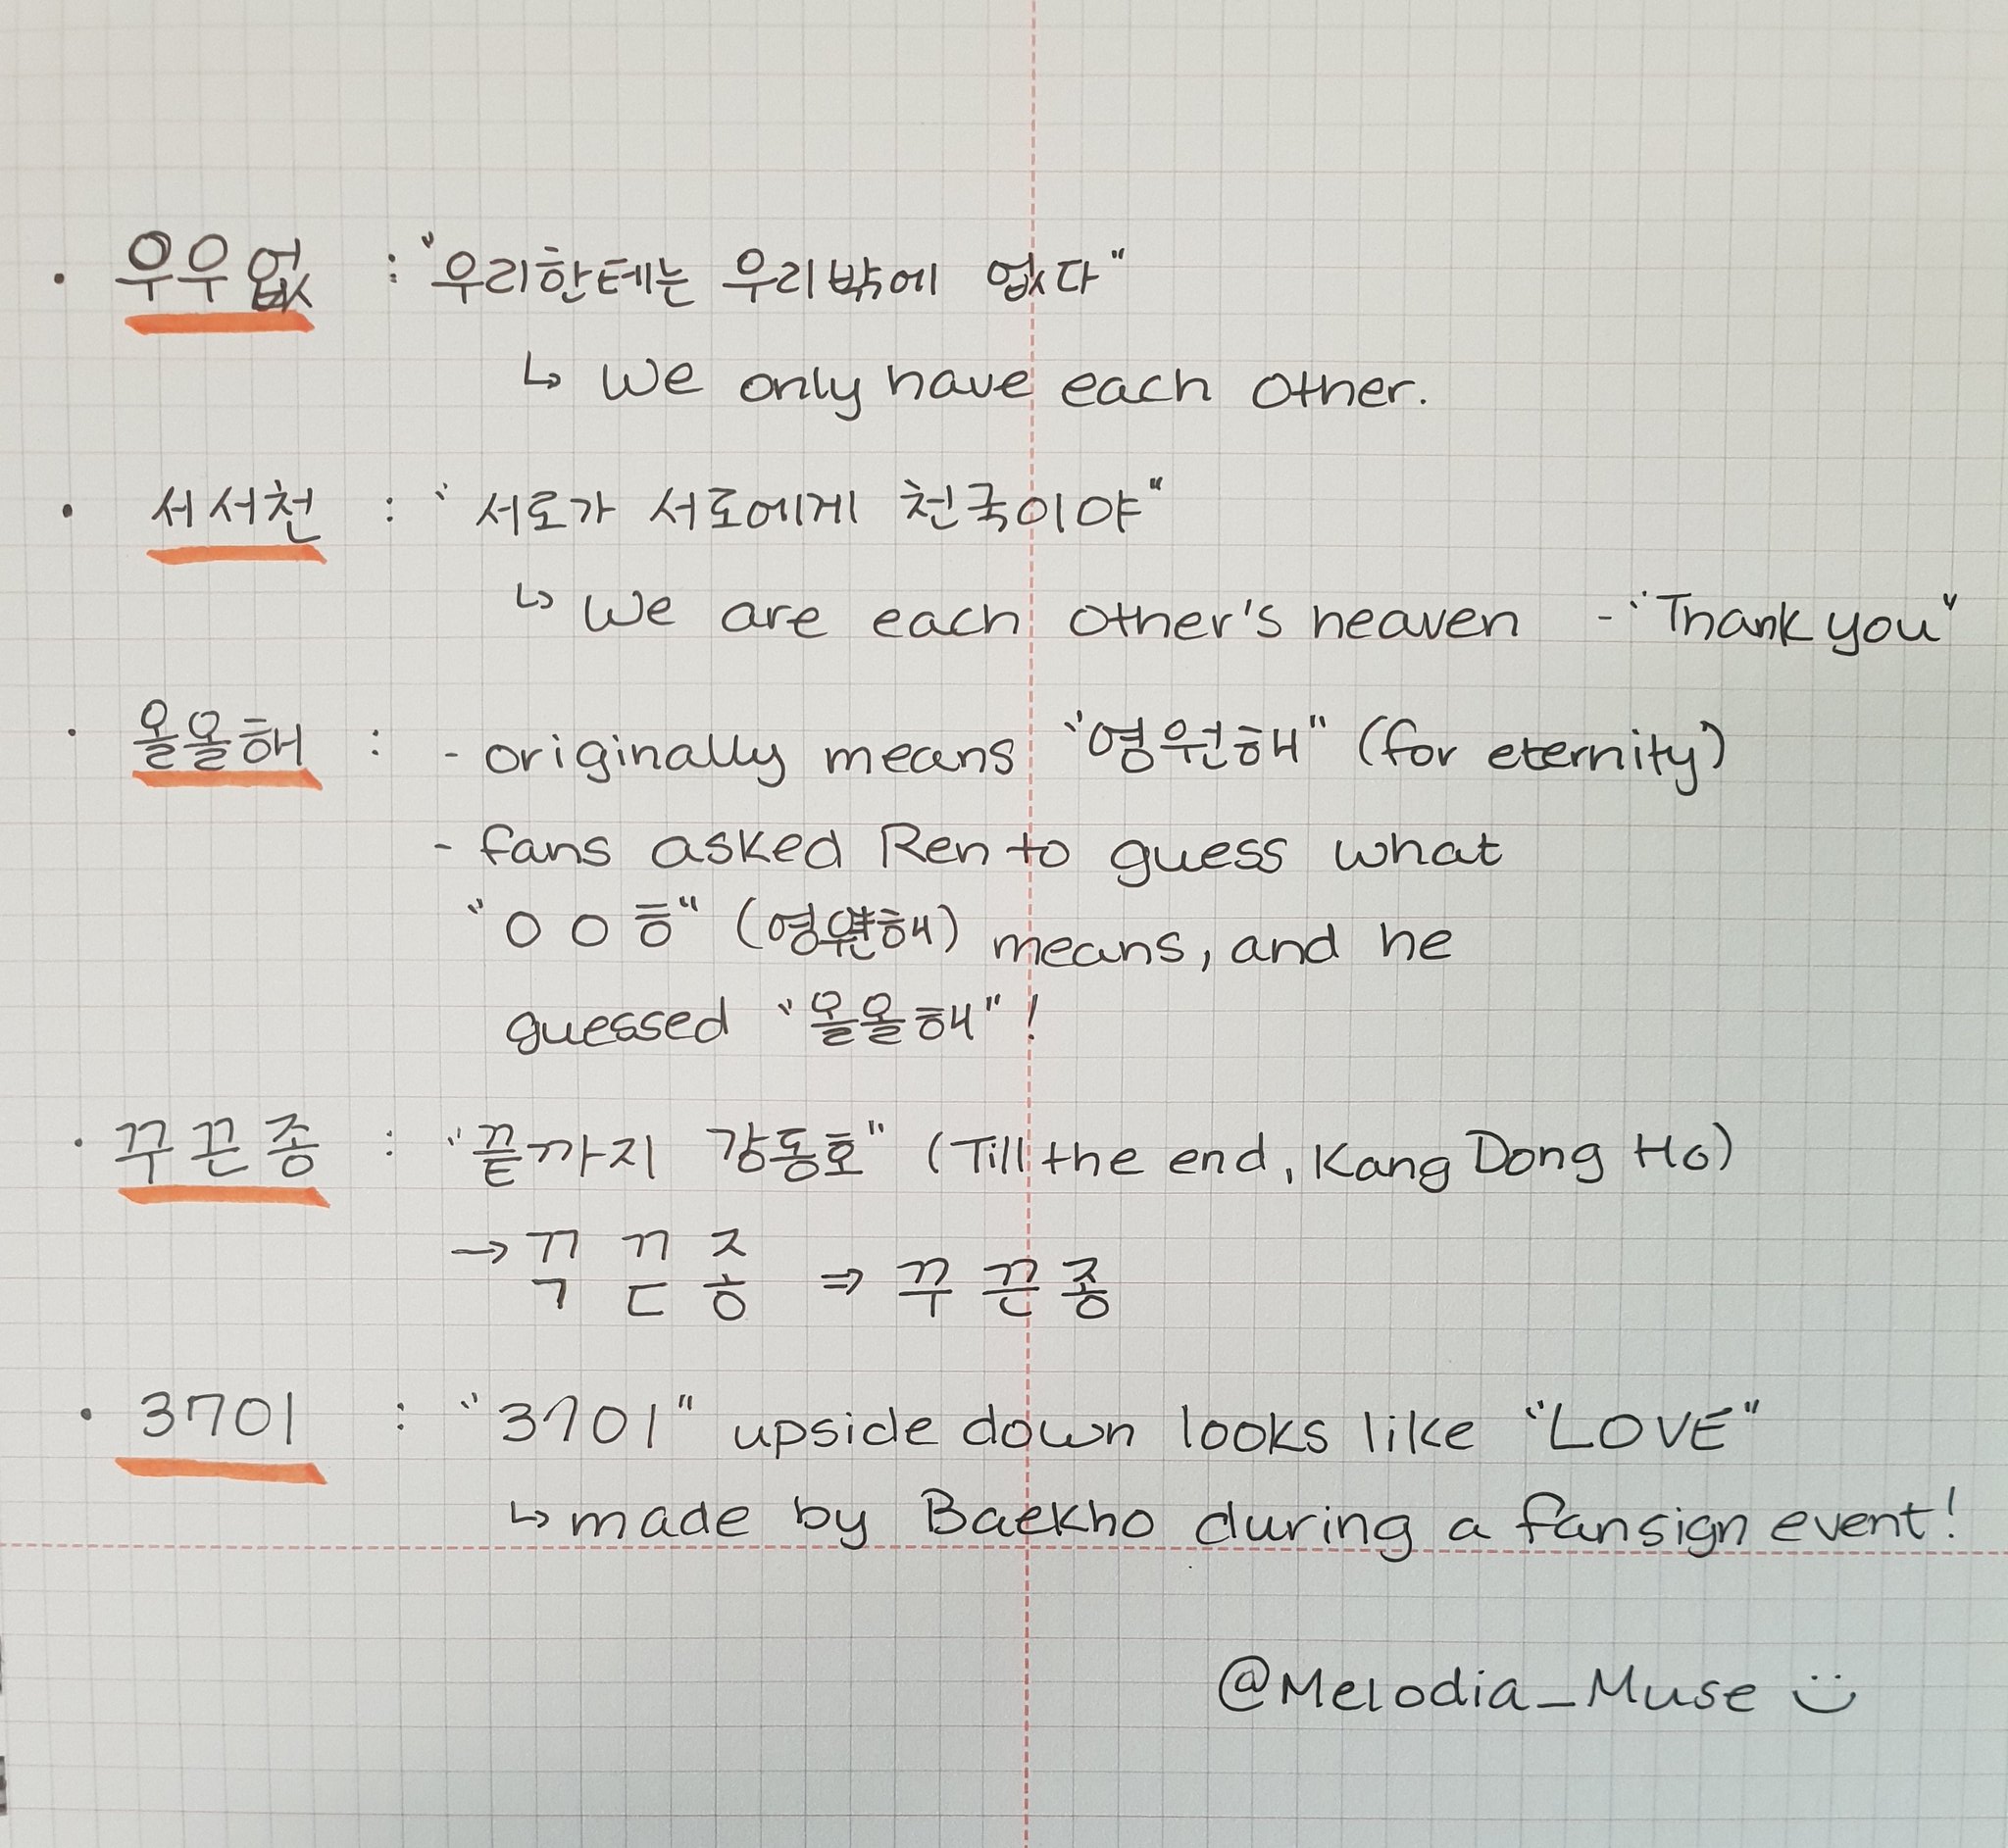 • 우우없 : "우리한테는 우리밖에 없다"
↳ We only have each other.
• 서서천 : "서로가 서로에게 천국이야"
↳ We are each other's heaven - "Thank you"
• 올올해 : - originally means "영원해" (for eternity)
- fans asked Ren to guess what
"ㅇ ㅇ ㅎ" (영원해) means, and he
guessed "올올해"!
• 꾸끈종 : "끝까지 강동호" (Till the end, Kang Dong Ho)
→ ㄲ ㄲ ㅈ
ㄱ ㄷ ㅎ ⇒ 꾸 끈 종
• 3701 : "3701" upside down looks like "LOVE"
↳ made by Baekho during a fansign event!
@Melodia_Muse :)